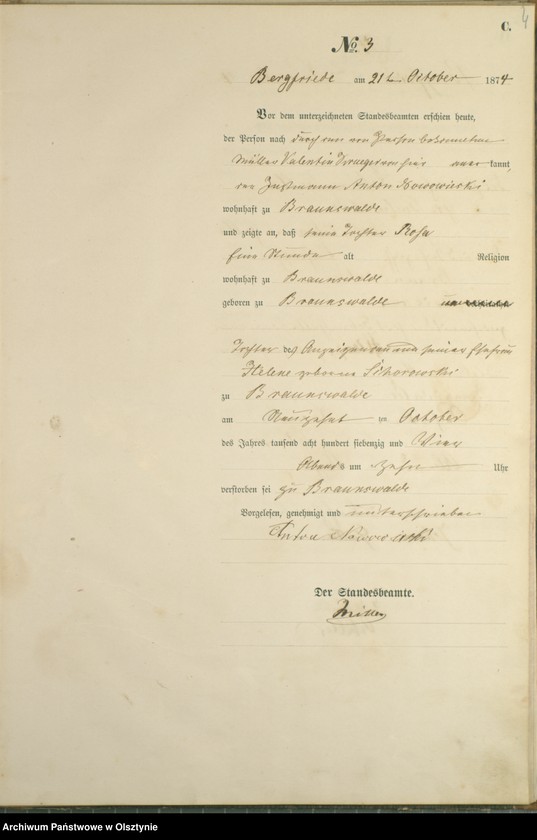 4
C.
No. 3
Bergfriede am 21t October 1874
Vor dem unterzeichneten Standesbeamten erschien heute,
der Person nach durch von Person bekannten
Müller Valentin von hier anerkannt,
Anton Nowowieski
wohnhaft zu Braunswalde
und zeigte an, daß seine Tochter Rosa
Eine Stunde alt Religion
wohnhaft zu Braunswalde
geboren zu Braunswalde
Tochter des Anzeigenden und seiner Ehefrau
Helene geborene
zu Braunswalde
am Neunzehnt October
des Jahres tausend acht hundert siebenzig und Vier
Abends um Zehn Uhr
verstorben sei zu Braunswalde
Vorgelesen, genehmigt und unterschrieben
Anton Nowowieski
Der Standesbeamte.
Archiwum Państwowe w Olsztynie